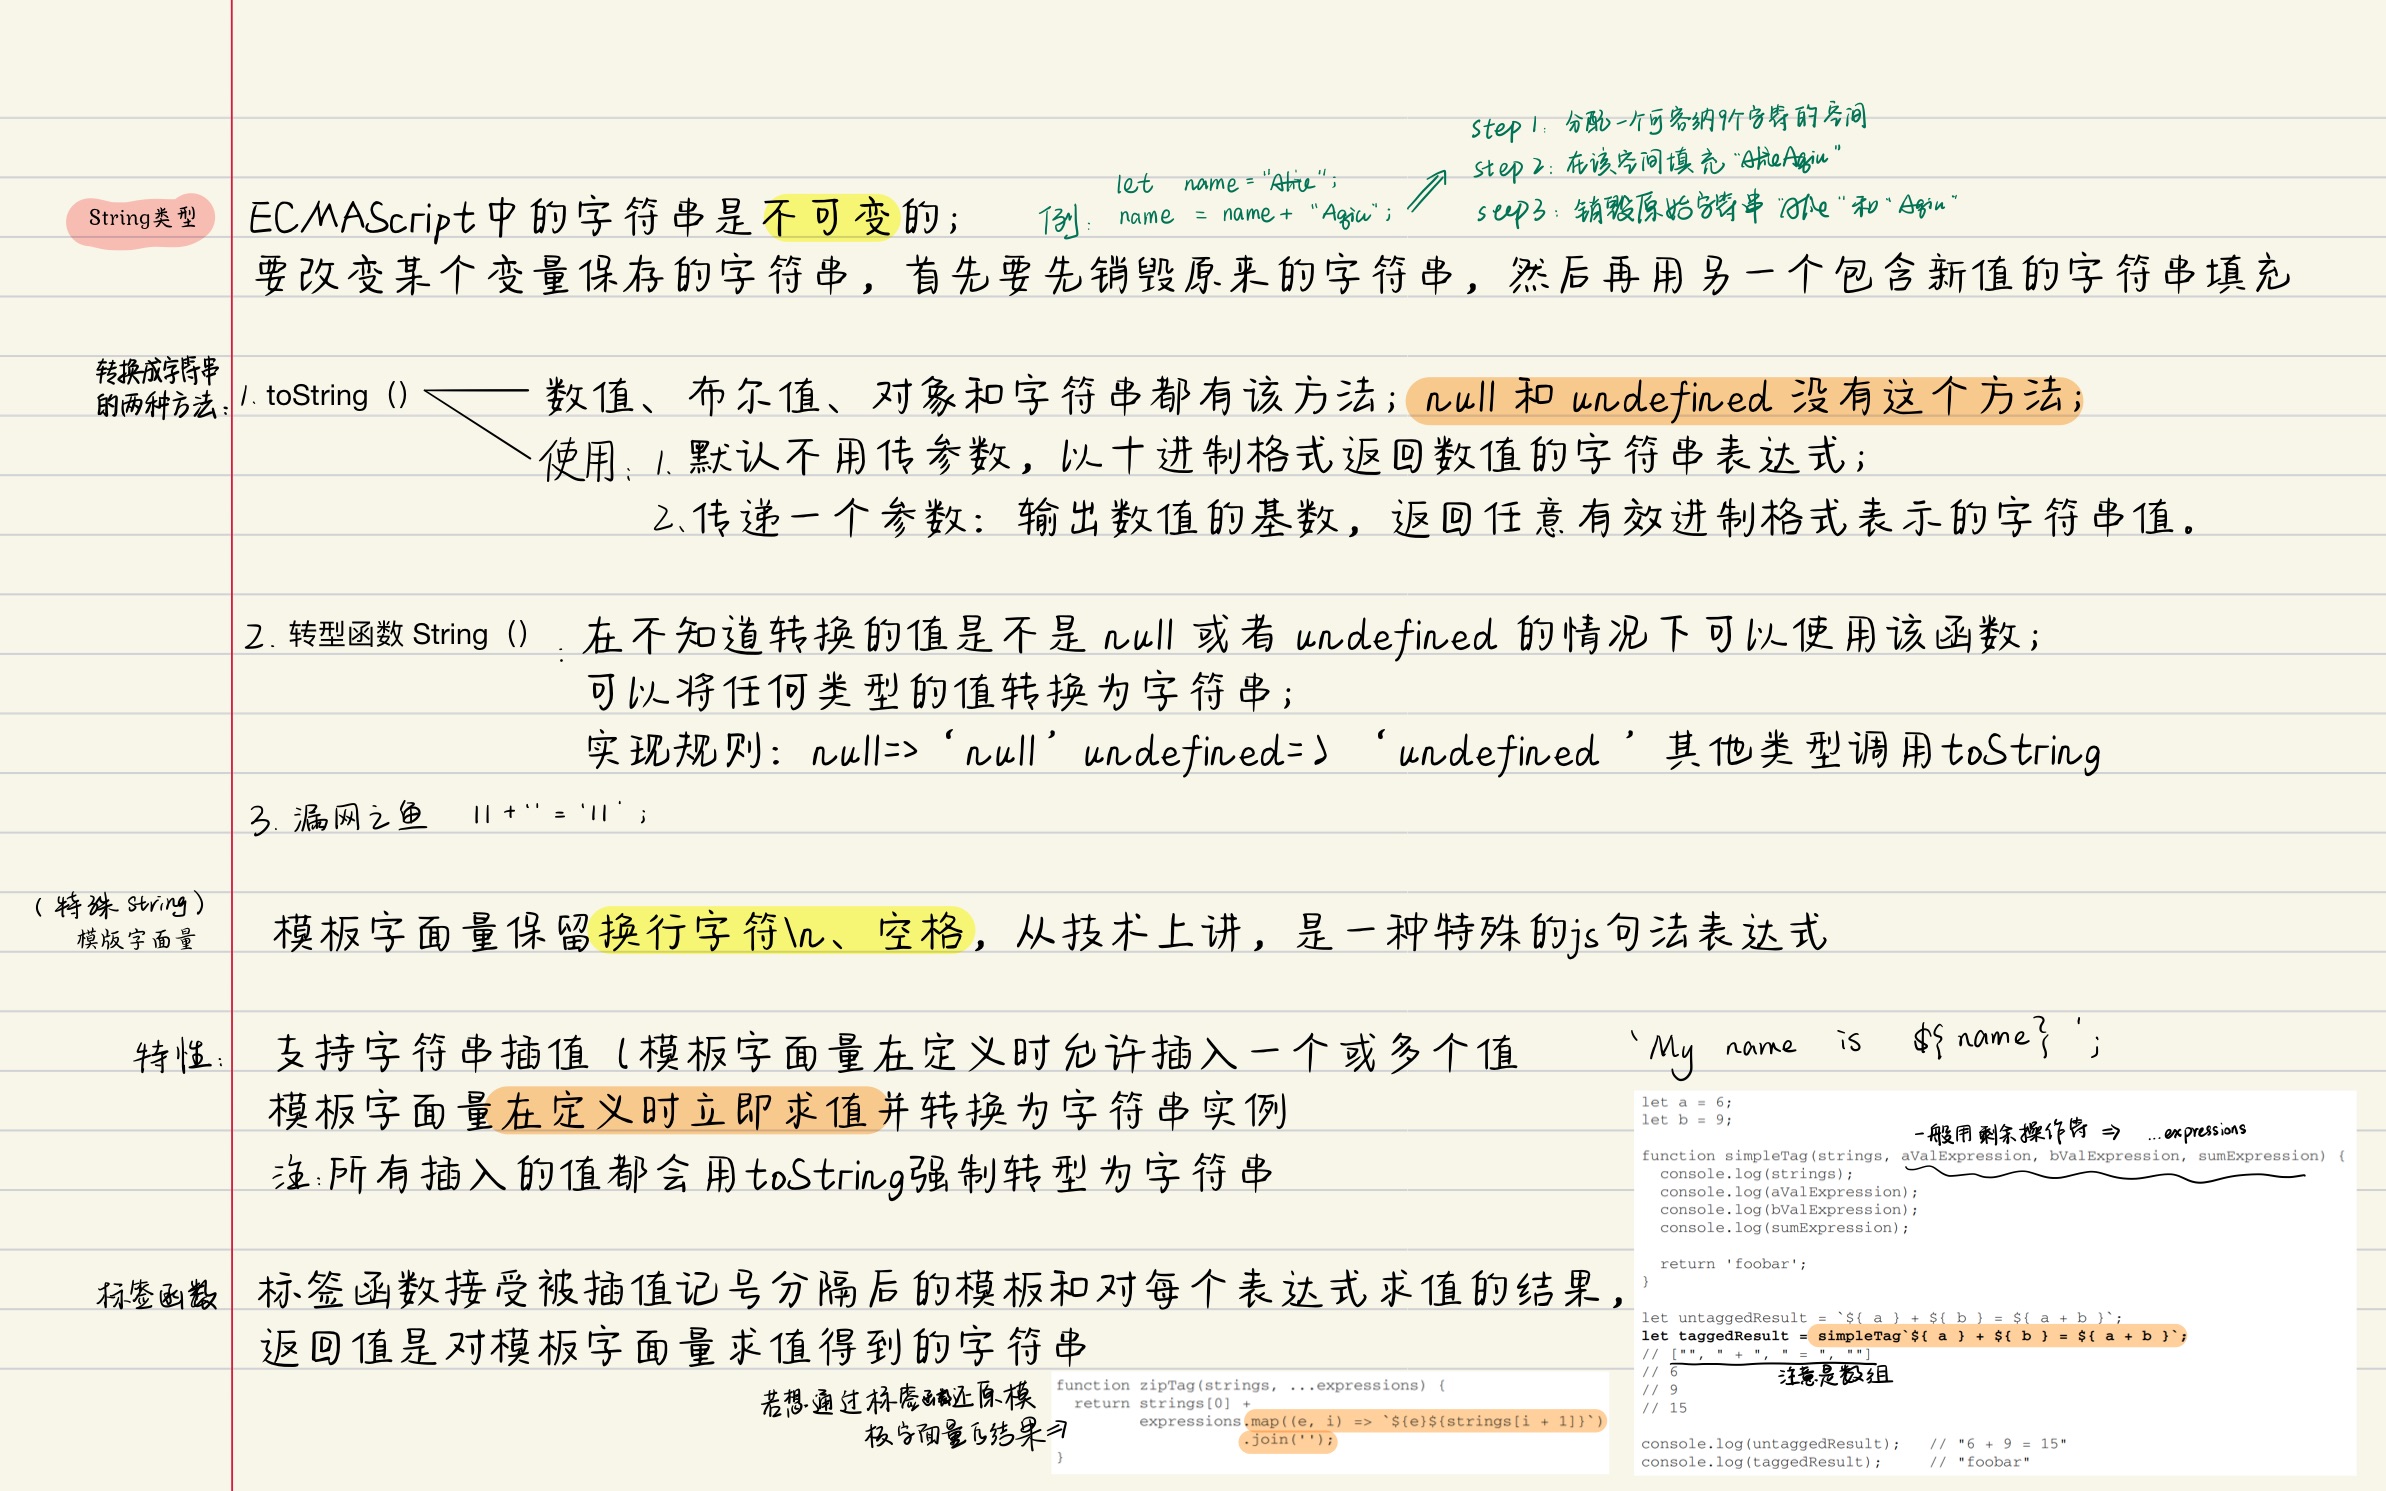 String类型
ECMAScript中的字符串是不可变的;
例: let name = "Alice";
name = name + "Aqiu";
step 1: 分配一个可容纳9个字符的空间
step 2: 在该空间填充 "AliceAqiu"
step3: 销毁原始字符串 "Alice" 和 "Aqiu"
要改变某个变量保存的字符串，首先要先销毁原来的字符串，然后再用另一个包含新值的字符串填充
转换成字符串
的两种方法:
1. toString（）
数值、布尔值、对象和字符串都有该方法; null 和 undefined 没有这个方法;
使用: 1. 默认不用传参数，以十进制格式返回数值的字符串表达式;
2.传递一个参数: 输出数值的基数，返回任意有效进制格式表示的字符串值。
2. 转型函数 String（） : 在不知道转换的值是不是 null 或者 undefined 的情况下可以使用该函数;
可以将任何类型的值转换为字符串;
实现规则: null=> ‘null’ undefined=> ‘undefined ’ 其他类型调用toString
3. 漏网之鱼 11 + '' = '11' ;
（特殊 String）
模版字面量
模板字面量保留换行字符\n、空格，从技术上讲，是一种特殊的js句法表达式
特性:
支持字符串插值（模板字面量在定义时允许插入一个或多个值
`My name is ${name}`;
模板字面量在定义时立即求值并转换为字符串实例
注:所有插入的值都会用toString强制转型为字符串
标签函数
标签函数接受被插值记号分隔后的模板和对每个表达式求值的结果，
返回值是对模板字面量求值得到的字符串
若想通过标签函数还原模
板字面量的结果⇒
function zipTag(strings, ...expressions) {
return strings[0] +
expressions.map((e, i) => `${e}${strings[i + 1]}`)
.join('');
}
let a = 6;
let b = 9;
一般用剩余操作符 ⇒ ...expressions
function simpleTag(strings, aValExpression, bValExpression, sumExpression) {
console.log(strings);
console.log(aValExpression);
console.log(bValExpression);
console.log(sumExpression);
return 'foobar';
}
let untaggedResult = `${ a } + ${ b } = ${ a + b }`;
let taggedResult = simpleTag`${ a } + ${ b } = ${ a + b }`;
// ["", " + ", " = ", ""]
// 6
注意是数组
// 9
// 15
console.log(untaggedResult); // "6 + 9 = 15"
console.log(taggedResult); // "foobar"